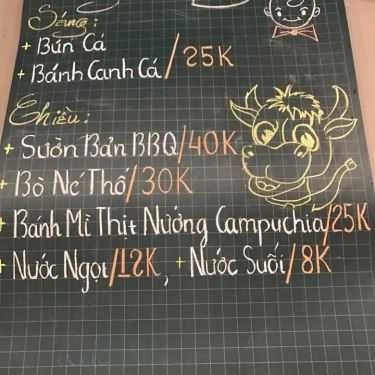 Sáng:
+ Bún Cá
+ Bánh Canh Cá / 25K
Chiều:
+ Sườn Bản BBQ/40K
+ Bò Né Thố/30K
+ Bánh Mì Thịt Nướng Campuchia/25K
+ Nước Ngọt/12K, + Nước Suối/8K